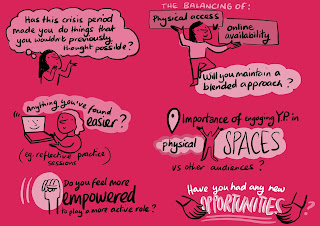 Has this crisis period
made you do things that
you wouldn't previously
thought possible?
THE BALANCING OF:
Physical access
online
availability
Will you maintain a
blended approach?
Anything you've found
easier?
(eg. reflective practice
sessions)
Importance of engaging Y.P. in
physical SPACES
vs other audiences?
Do you feel more
empowered
to play a more active role?
Have you had any new
OPPORTUNITIES?